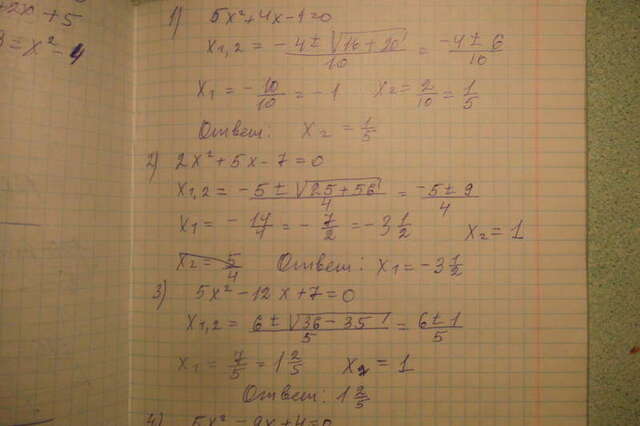 +2x+5
= x² - 4
1) 5x²+4x-1=0
x₁,₂ = (-4 ± √(16+20))/10 = (-4 ± 6)/10
x₁ = -10/10 = -1 x₂ = 2/10 = 1/5
Ответ: x₂ = 1/5
2) 2x²+5x-7=0
x₁,₂ = (-5 ± √(25+56))/4 = (-5 ± 9)/4
x₁ = -14/4 = -7/2 = -3 1/2 x₂ = 1
x₂ = 5/4 Ответ: x₁ = -3 1/2
3) 5x²-12x+7=0
x₁,₂ = (6 ± √(36-35))/5 = (6 ± 1)/5
x₁ = 7/5 = 1 2/5 x₂ = 1
Ответ: 1 2/5
4) 5x²-9x+4=0